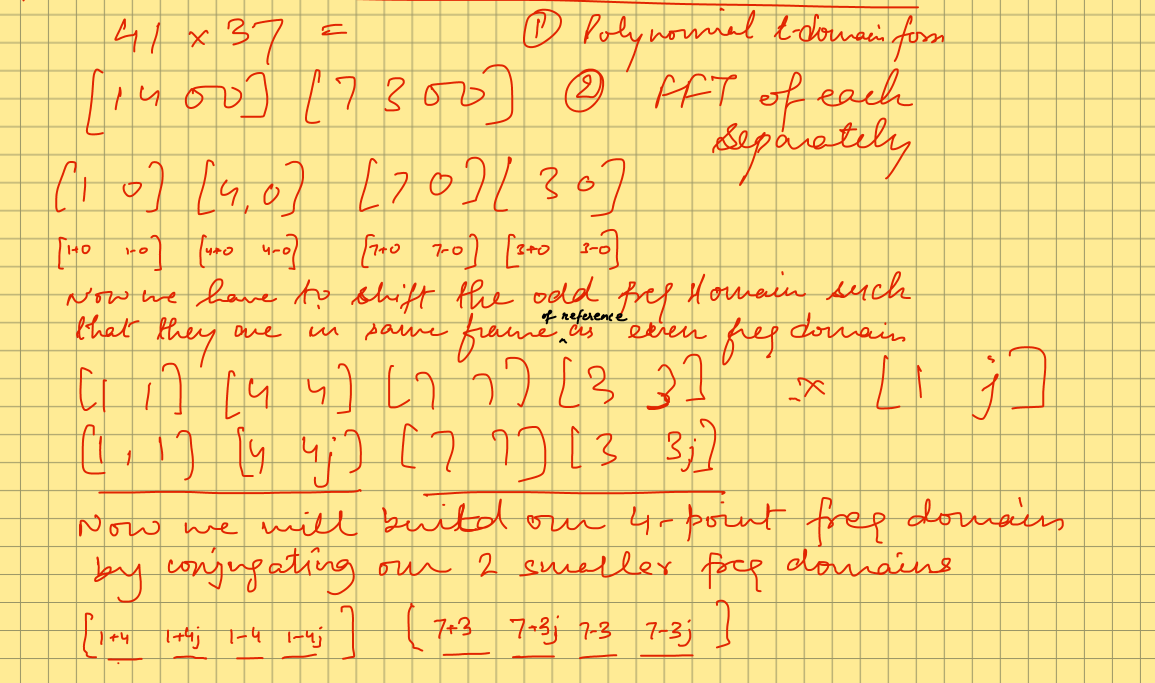 41 × 37 = ① Polynomial t-domain form
[1 4 0 0] [7 3 0 0] ② FFT of each
separately
[1 0] [4, 0] [7 0] [3 0]
[1+0 1-0] [4+0 4-0] [7+0 7-0] [3+0 3-0]
Now we have to shift the odd freq domain such
that they are in same frame ^ of reference as even freq domain
[1 1] [4 4] [7 7] [3 3] .× [1 j]
[1, 1] [4 4j] [7 7] [3 3j]
Now we will build our 4-point freq domain
by conjugating our 2 smaller freq domains
[1+4 1+4j 1-4 1-4j] [7+3 7+3j 7-3 7-3j]